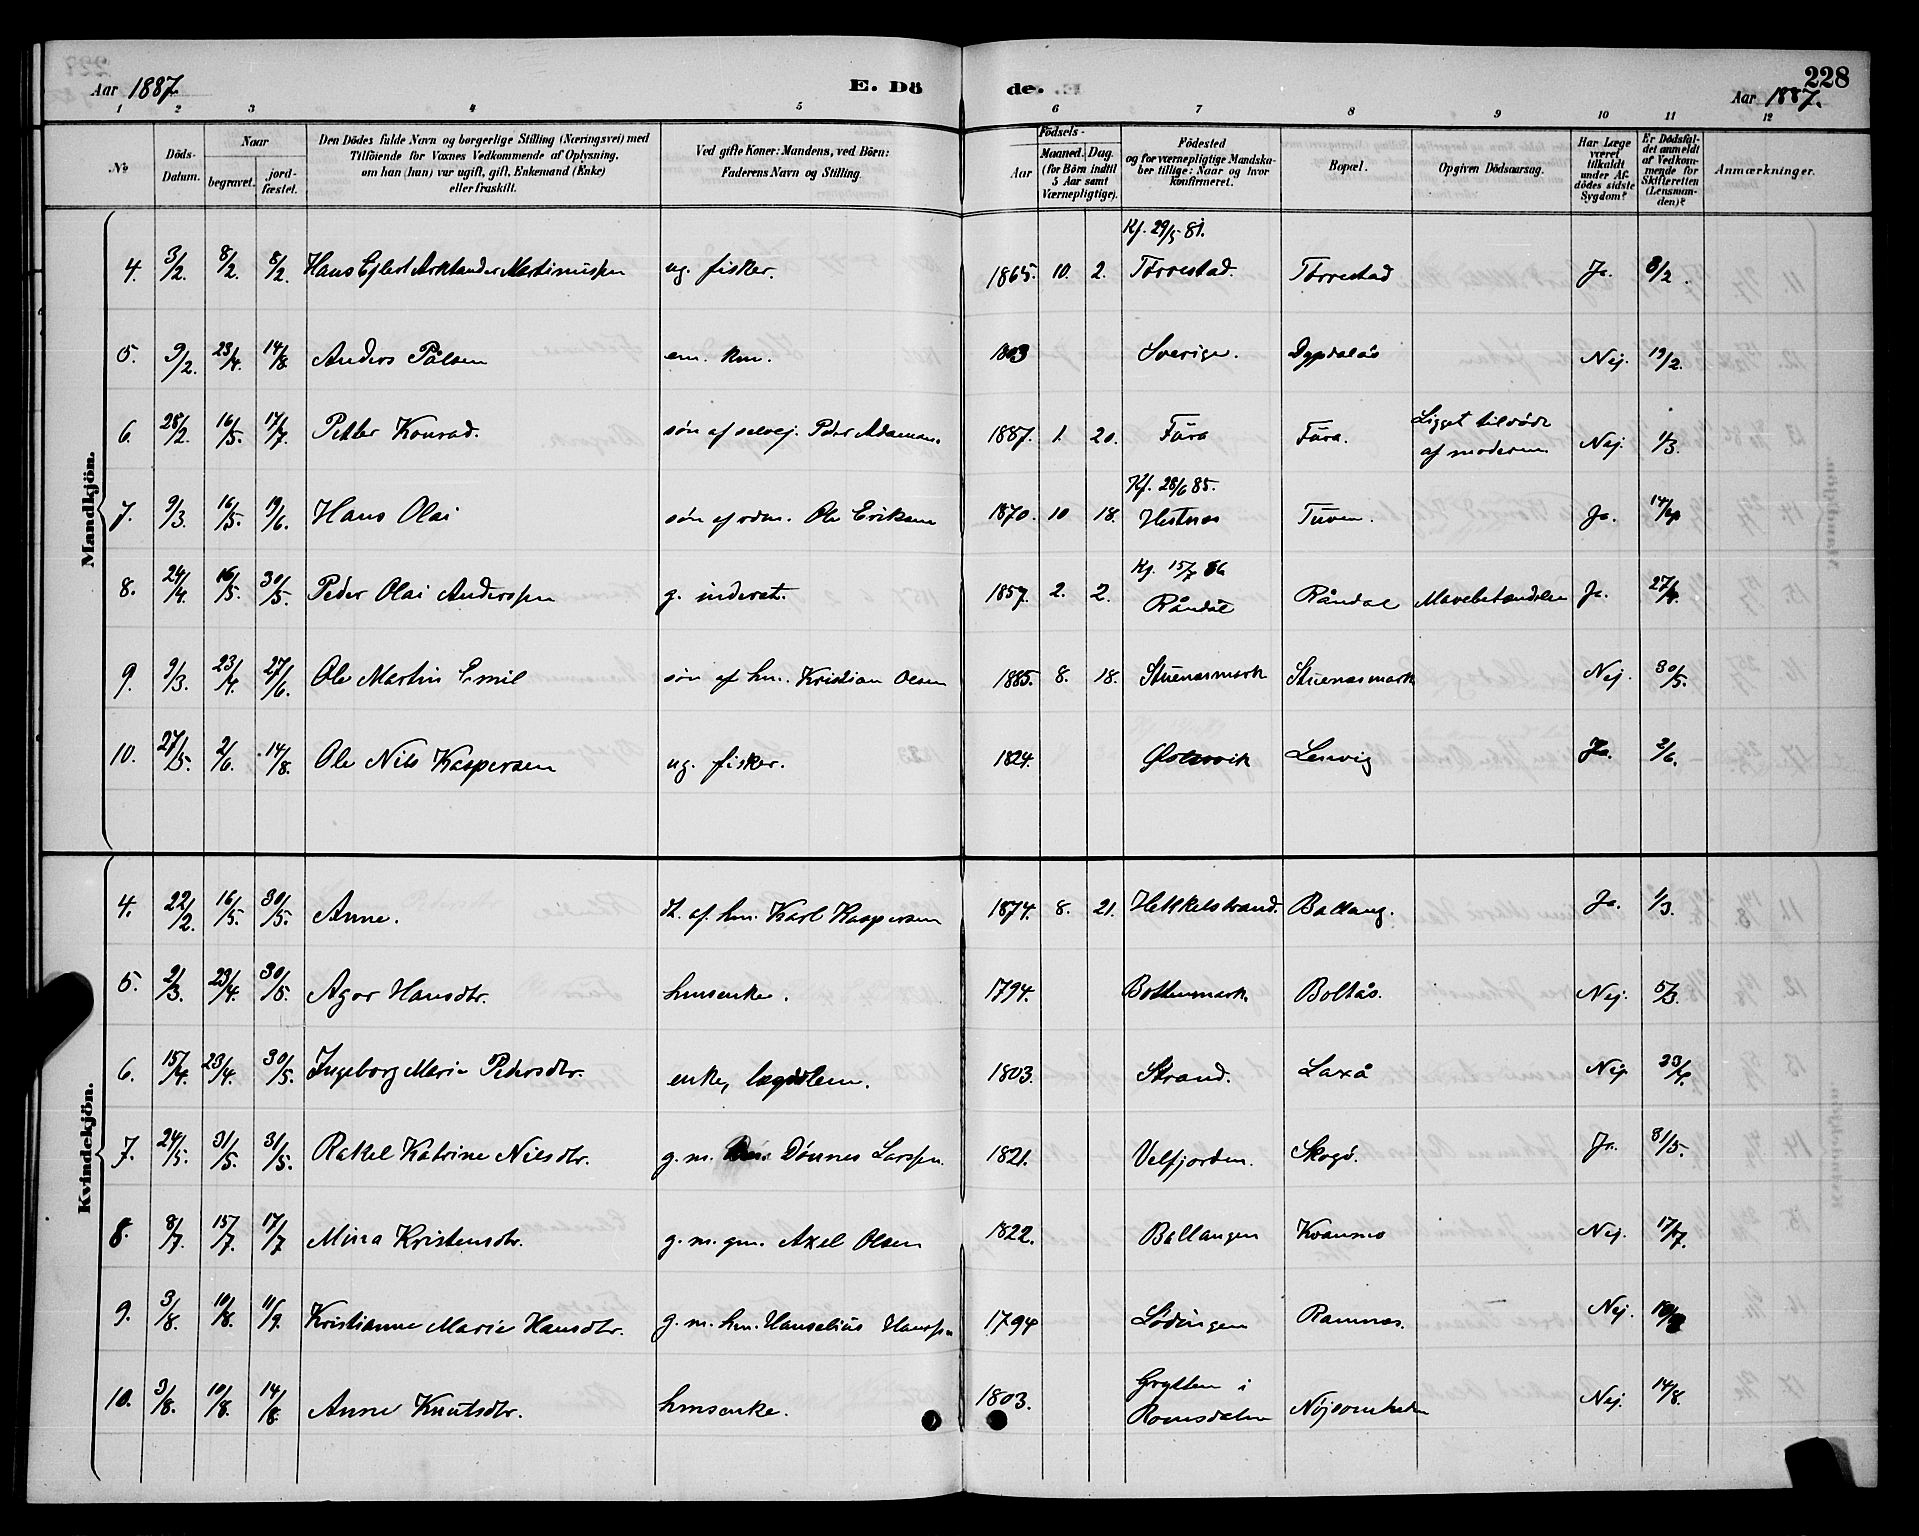 Aar 1887. E. Dö de. 228
Aar 1887.
1 2 3 4 5 6 7 8 9 10 11 12
No
Döds-Datum.
Naar
begravet.
jordfæstet.
Den Dödes fulde Navn og borgerlige Stilling (Næringsvei) med
Tilföiende for Voxnes Vedkommende af Oplysning,
om han (hun) var ugift, gift, Enkemand (Enke)
eller fraskilt.
Ved gifte Koner: Mandens, ved Börn:
Faderens Navn og Stilling.
Födsels-
Aar
Maaned. Dag.
(for Börn indtil
5 Aar samt
Værnepligtige).
Födested
og for værnepligtige Mandskaber tillige: Naar og hvor
konfirmeret.
Bopæl.
Opgiven Dödsaarsag.
Har Læge
været
tilkaldt
under Afdödes sidste
Sygdom?
Er Dödsfaldet anmeldt
af Vedkommende for
Skifteretten
(Lensmanden)?
Anmærkninger.
Mandkjön.
Kf. 29/5 81.
4. 3/2. 8/2. 8/2. Hans Ejlert Arktander Martinussen ug. fisker. 1865. 10. 2. Tørrestad. Tørrestad Ja. 8/2.
5. 9/2. 23/4. 14/8. Anders Pålsen em. km. 1803 Sverige. Dypdalås Nej. 19/2.
6. 28/2. 16/5. 17/7. Petter Konrad. søn af selvej. Peder Adamsen. 1887. 1. 20. Fura Fura. Ligget tildøde af moderen Nej. 1/3.
Kf. 28/6 85.
7. 9/3. 16/5. 19/6. Hans Olai søn af rdm. Ole Eriksen 1870. 10 18. Hestnes Tuven. Ja. 14/4
Kf. 15/7
8. 24/4. 16/5. 30/5. Peder Olai Anderssen g. inderst. 1857. 2. 2. Råndal Råndal Mavebetændelse Ja. 27/4.
9. 9/3. 23/4. 27/6. Ole Martin Emil søn af hm. Kristian Olsen 1885. 8. 18. Stuenesmark Stuenesmark Nej. 30/5.
10. 27/5. 2/6. 14/8. Ole Nils Kaspersen ug. fisker. 1824. Østervik Lervig Ja. 2/6.
Kvindekjön.
4. 22/2. 16/5. 30/5. Anne. dt. af hm. Karl Kaspersen 1874. 8. 21. Hekkelstrand. Ballang. Ja. 1/3.
5. 2/3. 23/4. 30/5. Agor Hansdtr. hmsenke. 1794. Bottenmark. Boltås. Nej. 5/3.
6. 15/4. 23/4. 30/5. Ingeborg Marie Pedersdtr. enke, lægdslem. 1803. Strand. Laxå Nej 23/4.
7. 24/5. 31/5. 31/5. Rakel Katrine Nilsdtr. g. m. Dønnes Larssen. 1821. Velfjorden. Skogø. Ja. 31/5.
8. 8/7. 15/7. 17/7 Mina Kristensdtr. g. m. gm. Axel Olsen 1822. Ballangen Kvanmo Nej. 17/7.
9. 3/8. 10/8. 11/9. Kristianne Marie Hansdtr. g. m. hm. Hanselius Hanssen 1794 Lødingen Ramnes. Nej.
10. 3/8. 10/8. 14/8 Anne Knutsdtr. hmsenke. 1803. Grytten i Romsdalen Nøjsomheden Nej. 14/8.